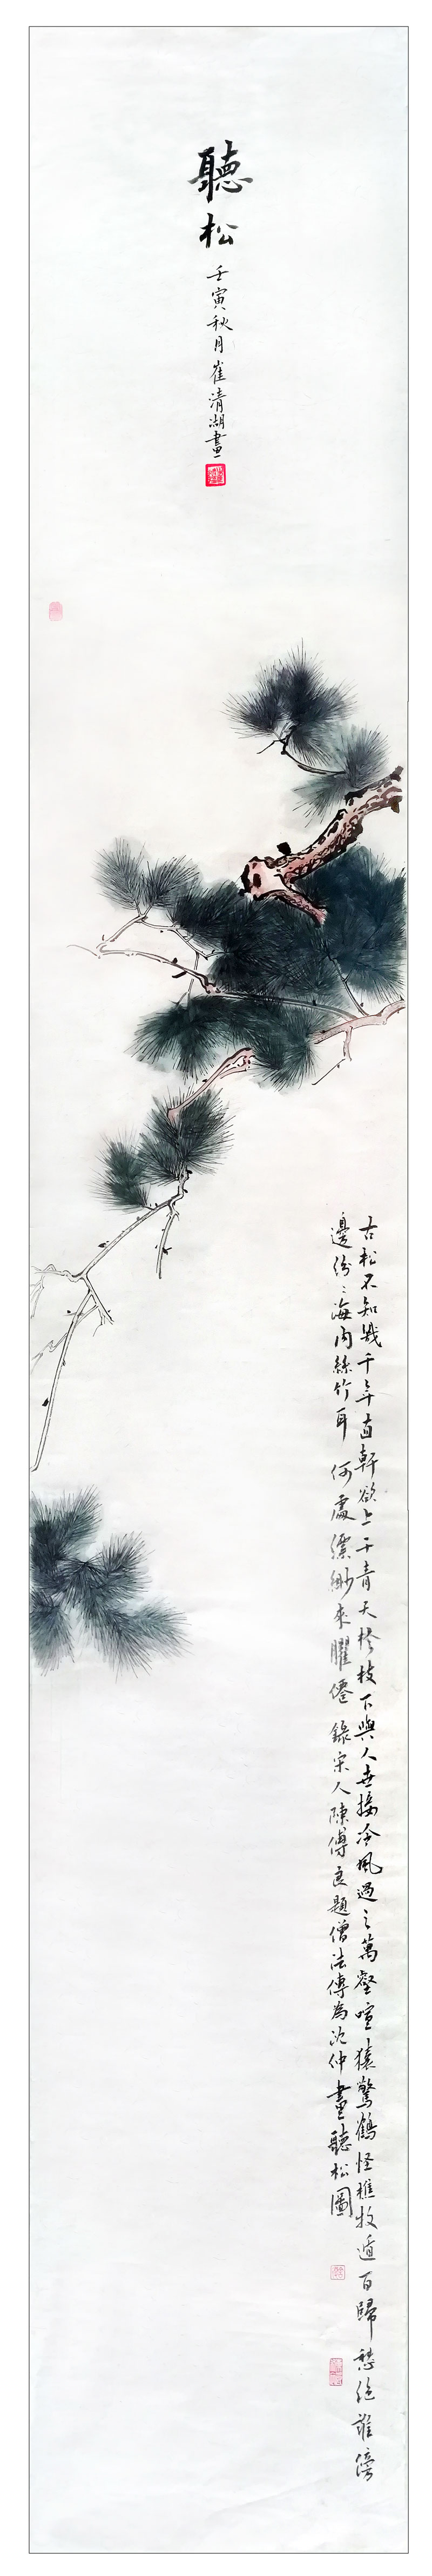 聽松
壬寅秋月崔清湖畫
古松不知幾千年直軒欲上干青天樛枝下與人世接冷風過之萬壑喧猿驚鶴怪樵牧遁百歸愁絕誰傍
邊紛々海內絲竹耳何處縹緲來臞僊錄宋人陳傅良題僧法傳為沈仲畫聽松圖